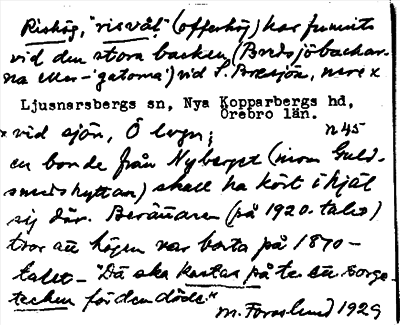 Rishög, "risvål" (offerhög) har funnits
vid den stora backen (Bredsjöbackar-
na eller -"gatorna") vid S. Bredsjön, nere x
Ljusnarsbergs sn, Nya Kopparbergs hd,
Örebro län.
x vid sjön, Ö lægn; n 45
en bonde från Nyberget (inom Guld-
smedshyttan) skall ha kört ihjäl
sig där. Berättaren (på 1920-talet)
tror att högen var borta på 1870-
talet - "Dä ska kastas på te ett sorge-
tecken för den döde."
M. Forslund 1929